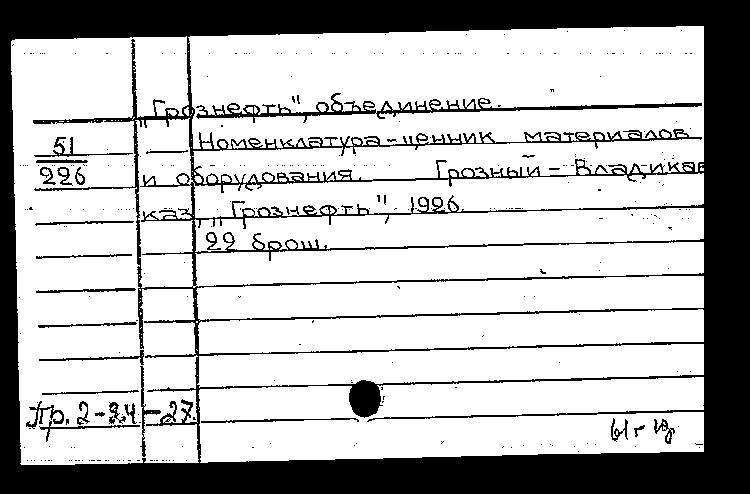 „Грознефть", объединение.
51 Номенклатура-ценник материалов
226 и оборудования. Грозный - Владикав
каз, „Грознефть", 1926.
22 брош.
Пр. 2-9.4-27.